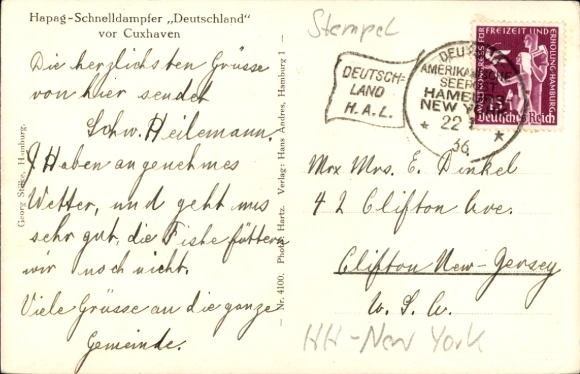 Hapag-Schnelldampfer „Deutschland"
vor Cuxhaven
Die herzlichsten Grüsse
von hier sendet
Schw. Heilemann.
Haben angenehmes
Wetter, und geht uns
sehr gut, die Fishe füttern
wir noch nicht.
Viele Grüsse an die ganze
Gemeinde.
Georg Stilke, Hamburg.
Nr. 4100. Photo: Hartz. Verlag: Hans Andres, Hamburg 1
Stempel
DEUTSCH-
LAND
H.A.L.
DEUTSCH
AMERIKANISCHE
SEEPOST
HAMBURG
NEW YORK
22
36
WELTKONGRESS FÜR FREIZEIT UND ERHOLUNG HAMBURG
15
Deutsches Reich
Mrx Mrs. E. Dinkel
42 Clifton Ave.
Clifton New-Jersey
U.S.A.
HH-New York